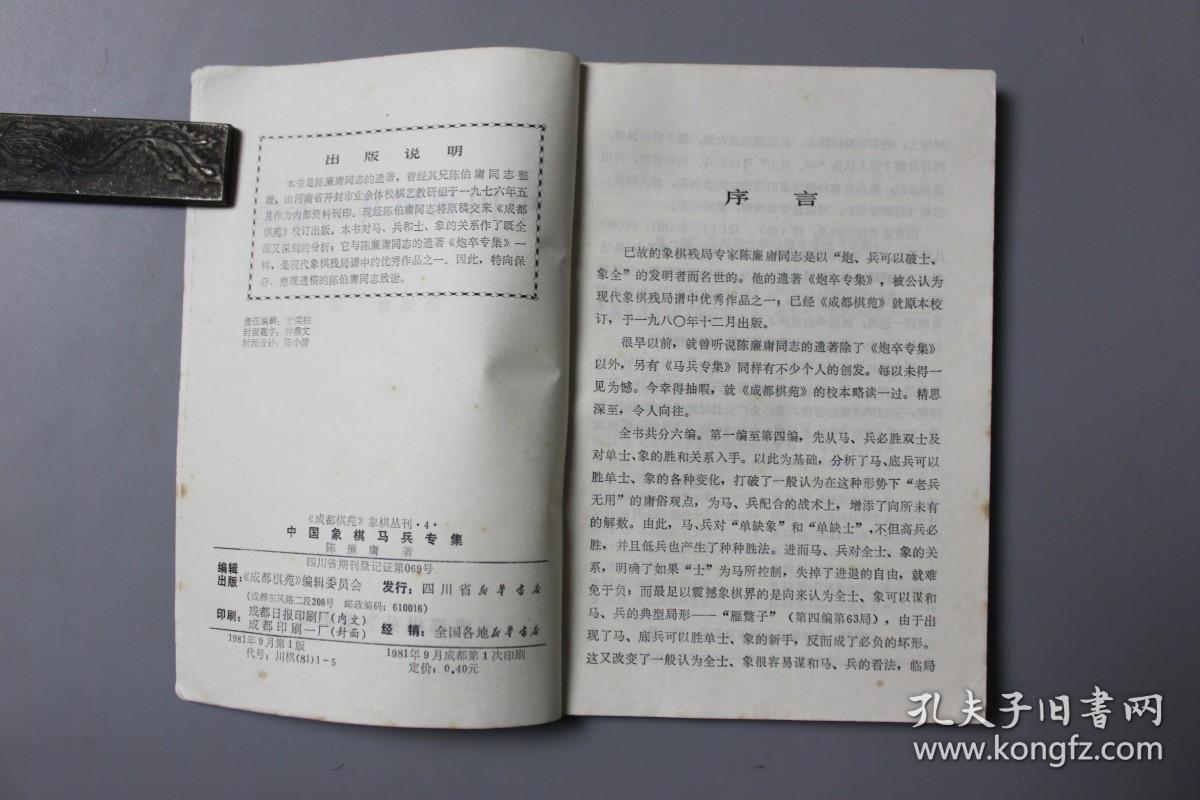 出版说明
本书是陈廉庸同志的遗著，曾经其兄陈伯庸同志整
理，由河南省开封市业余体校棋艺教研组于一九七六年五
月作为内部资料刊印。现经陈伯庸同志将原稿交来《成都
棋苑》校订出版。本书对马、兵和士、象的关系作了既全
面又深刻的分析；它与陈廉庸同志的遗著《炮卒专集》一
样，是现代象棋残局谱中的优秀作品之一。因此，特向保
存、整理遗稿的陈伯庸同志致谢。
责任编辑：
封面题字：钟鼎文
封面设计：陈小倩
《成都棋苑》象棋丛刊·4·
中国象棋马兵专集
陈廉庸 著
四川省期刊登记证第069号
编辑
出版：《成都棋苑》编辑委员会 发行：四川省新华书店
（成都东风路二段208号 邮政编码：610016）
印刷：成都日报印刷厂（内文）
成都印刷一厂（封面） 经销：全国各地新华书店
1981年9月第1版 1981年9月成都第1次印刷
代号：川棋(81)1-5 定价：0.40元
序 言
已故的象棋残局专家陈廉庸同志是以“炮、兵可以破士、
象全”的发明者而名世的。他的遗著《炮卒专集》，被公认为
现代象棋残局谱中优秀作品之一；已经《成都棋苑》就原本校
订，于一九八〇年十二月出版。
很早以前，就曾听说陈廉庸同志的遗著除了《炮卒专集》
以外，另有《马兵专集》同样有不少个人的创发。每以未得一
见为憾。今幸得抽暇，就《成都棋苑》的校本略读一过。精思
深至，令人向往。
全书共分六编。第一编至第四编，先从马、兵必胜双士及
对单士、象的胜和关系入手。以此为基础，分析了马、底兵可以
胜单士、象的各种变化，打破了一般认为在这种形势下“老兵
无用”的庸俗观点，为马、兵配合的战术上，增添了向所未有
的解数。由此，马、兵对“单缺象”和“单缺士”，不但高兵必
胜，并且低兵也产生了种种胜法。进而马、兵对全士、象的关
系，明确了如果“士”为马所控制，失掉了进退的自由，就难
免于负；而最足以震撼象棋界的是向来认为全士、象可以谋和
马、兵的典型局形——“雁蹩子”（第四编第63局），由于出
现了马、底兵可以胜单士、象的新手，反而成了必负的坏形。
这又改变了一般认为全士、象很容易谋和马、兵的看法，临局
孔夫子旧書网
www.kongfz.com